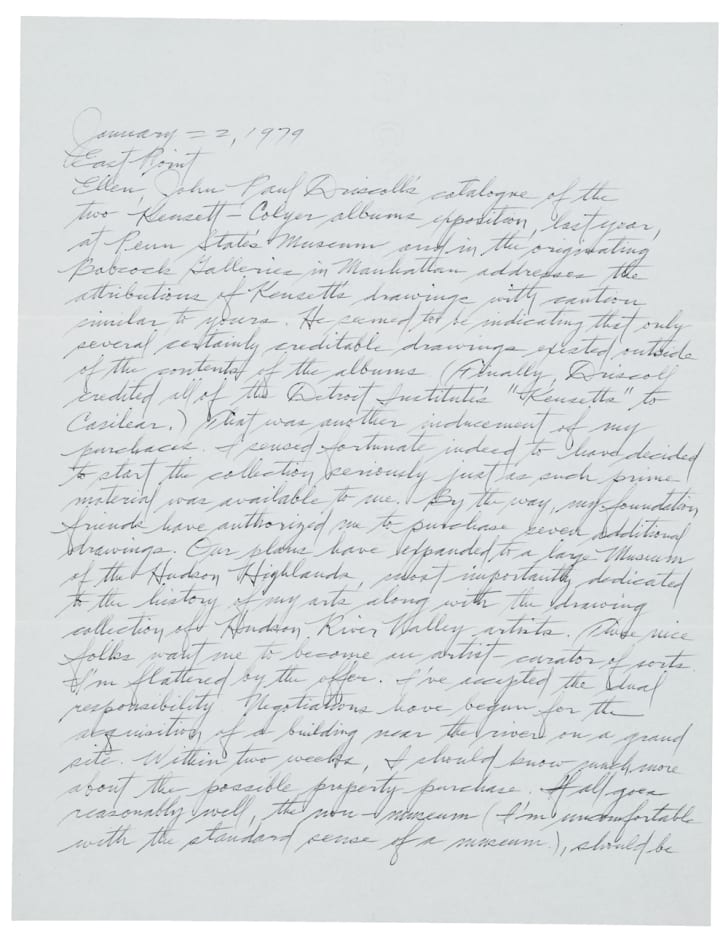 January 22, 1979
East Point
Ellen, John Paul Driscoll's catalogue of the
two Kensett-Colyer albums exposition, last year,
at Penn State's Museum and in the originating
Babcock Galleries in Manhattan addresses the
attributions of Kensett's drawings with caution
similar to yours. He seemed to be indicating that only
several certainly creditable drawings existed outside
of the contents of the albums. (Finally, Driscoll
credited all of the Detroit Institute's "Kensetts" to
Casilear.) That was another inducement of my
purchases. I sensed fortunate indeed to have decided
to start the collection seriously just as such prime
material was available to me. By the way, my foundation
friends have authorized me to purchase seven additional
drawings. Our plans have expanded to a large Museum
of the Hudson Highlands, most importantly dedicated
to the history of my arts along with the drawing
collection of Hudson River Valley artists. Those nice
folks want me to become an artist-curator of sorts.
I'm flattered by the offer. I've accepted the dual
responsibility. Negotiations have begun for the
acquisition of a building near the river on a grand
site. Within two weeks, I should know much more
about the possible property purchase. If all goes
reasonably well, the non-museum (I'm uncomfortable
with the standard sense of a museum.), should be